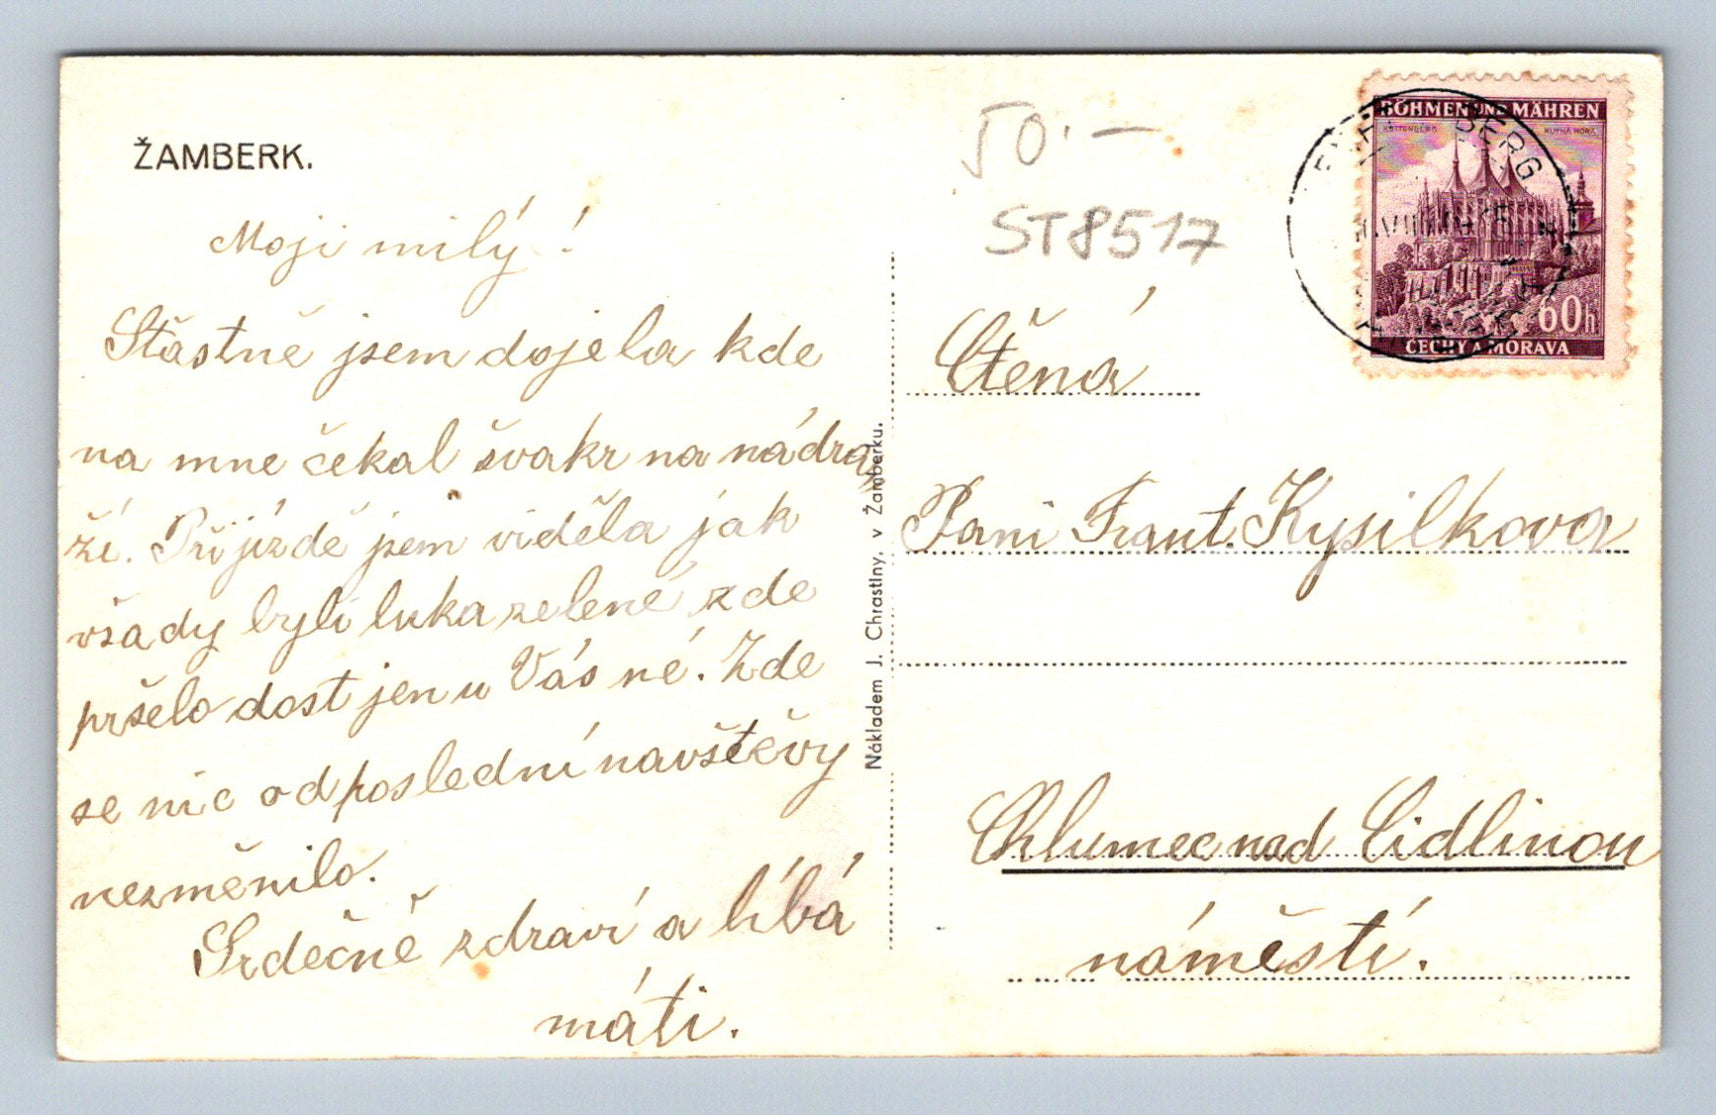 ŽAMBERK.
Moji milý!
Šťastně jsem dojela kde
na mne čekal švakr na nádra
ží. Při jízdě jsem viděla jak
všady byli luka zelené zde
pršelo dost jen u Vás né. Zde
se nic od poslední navštěvy
nezměnilo.
Srdečně zdraví a líbá
máti.
Nákladem J. Chrastiny, v Žamberku.
50.—
ST8517
BÖHMEN UND MÄHREN
KUTTENBERG KUTNÁ HORA
60h
ČECHY A MORAVA
BERG
Ctěná
Paní Frant. Kysilkova
Chlumec nad Cidlinou
náměstí.